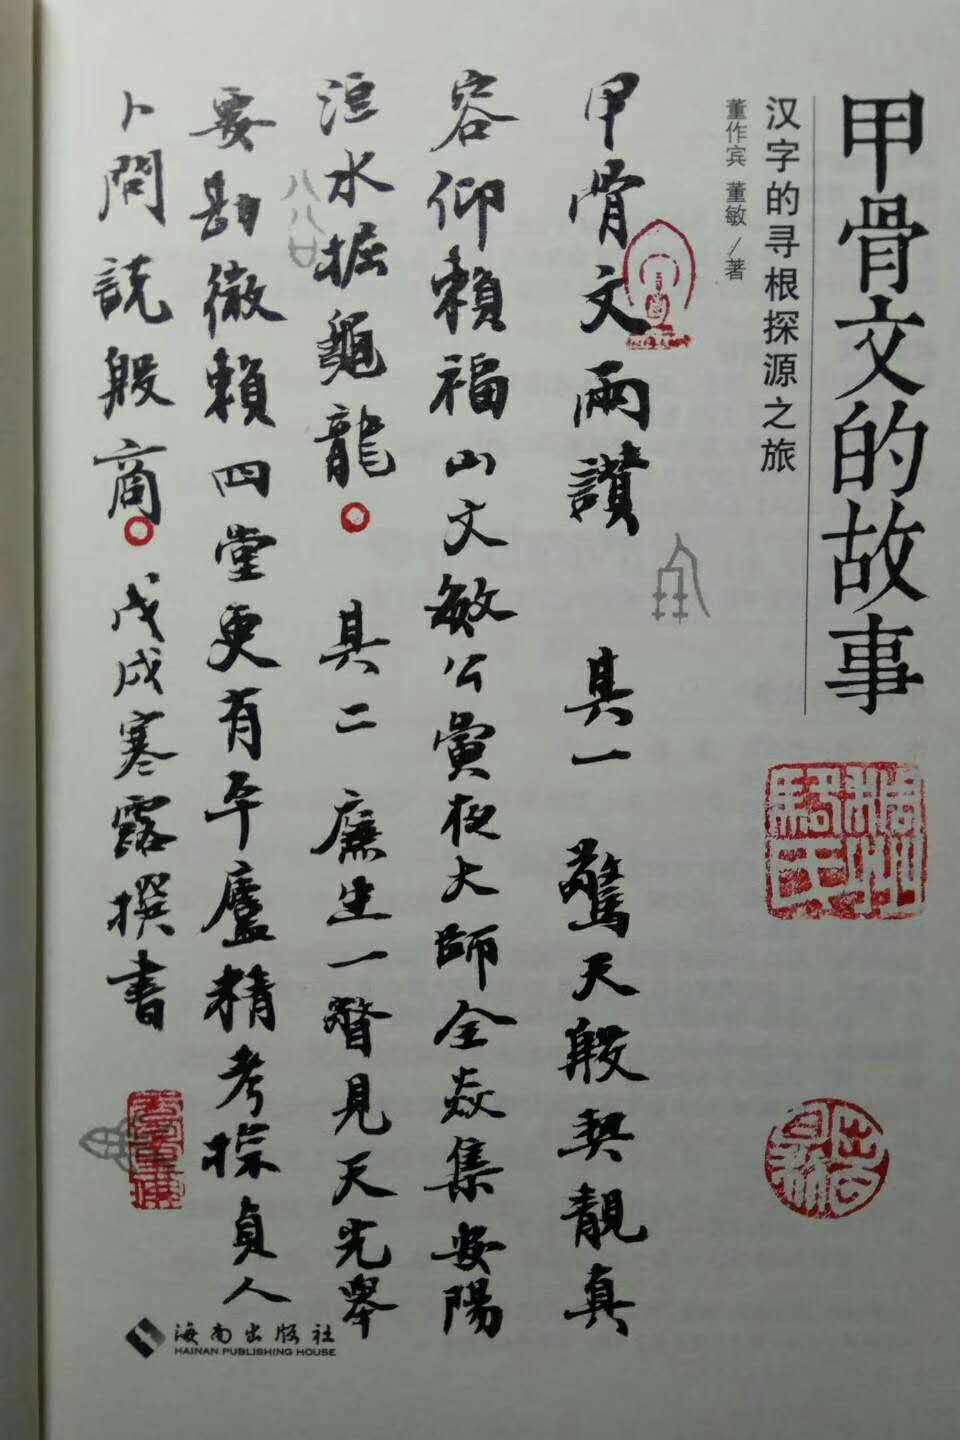 甲骨文的故事
汉字的寻根探源之旅
董作宾 董敏/著
甲骨文兩讃 其一 驚天殷契靚真
容仰賴福山文敏公寅夜大師全焱集安陽
洹水掘龜龍 其二 廉生一瞥見天光舉
要勘徵賴四堂更有平廬精考探貞人
卜問説殷商 戊戌寒露撰書
海南出版社
HAINAN PUBLISHING HOUSE